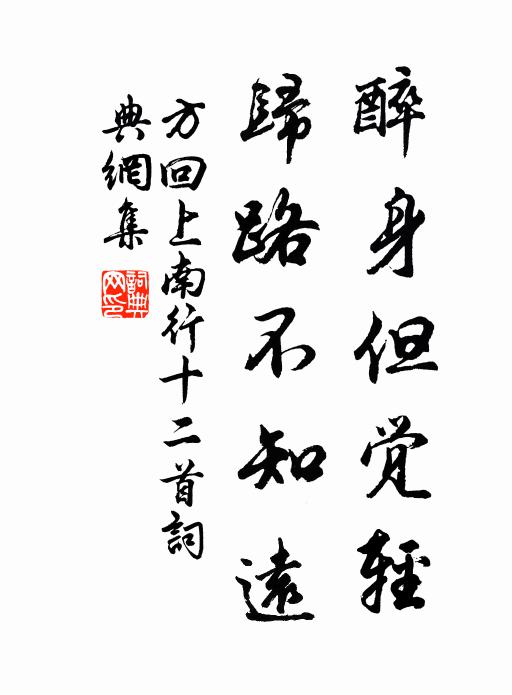 醉身但覺輕
歸路不知遠
方回上南行十二首詞
典網集
詞典網印